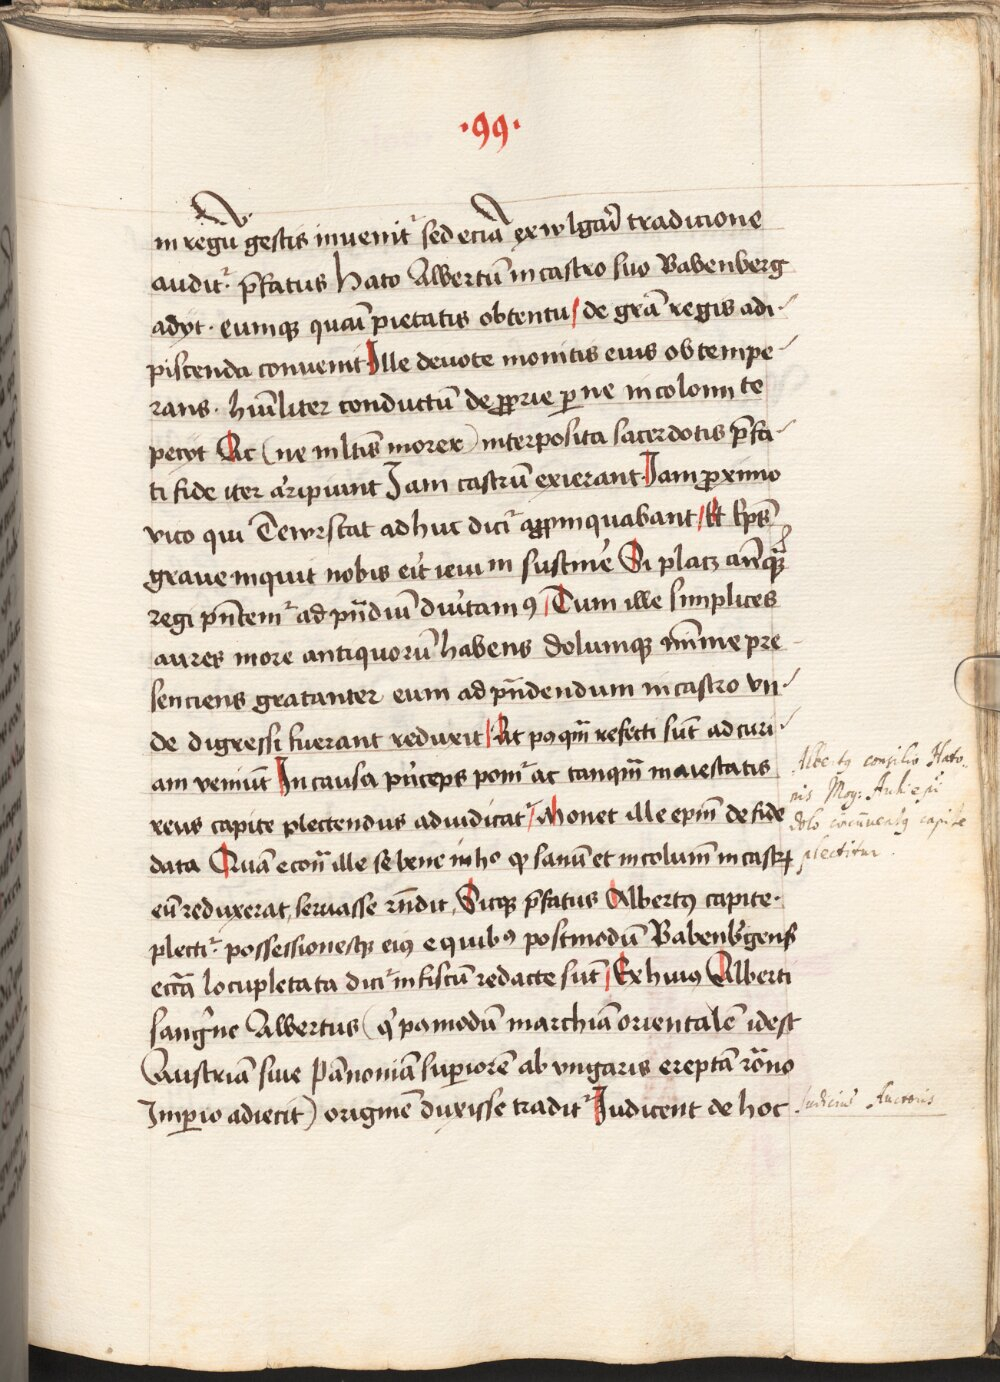 ·99·
in regū gestis invenit᷑ sed eciā ex wlgari tradicione
audit᷑· p̄fatus Hato Albertū in castro suo Babenberg
adyt · eumqꝫ quasi pietatis obtentu / de gr̄a regis adi-
piscenda convenit Ille devote monitis eius obtempe-
rans · hūiliter conductū de proprie
petyt Ac (ne mltis morer) interposita sacerdotis p̄fa-
ti fide iter aripiunt Jam castrū exierant Jam proximo
vico qui Tewrstat adhuc dicit᷑ appropinquabant / Et Ep̄s
grave inquit nobis erit ieiuniū sustinere Si placꝫ
regi ad prandiū divertamꝰ / Tum ille simplices
aures more antiquorū habens dolumqꝫ minime pre-
senciens gratanter eum ad prandendum in castro vn-
de digressi fuerant reduxit / At poqm̄ refecti sūt ad curi-
am veniūt In causa princeps ponit᷑ ac tanqm̄ maiestatis
reus capite plectendus adiudicat᷑ / Monet ille ep̄m de fide
data Quā econ̄ ille se bene in hᵒ qꝫ sanū et incolumē in castrꝫ
eū reduxerat, servasse rn̄dit, Sicqꝫ p̄fatus Albertꝰ capite·
plectit᷑· possessionesqꝫ eiꝰ e quibꝰ postmodū Babenbergens̄
eccā locupletata dicit᷑ in fiscū redacte sūt / Ex huiꝰ Alberti
sangue Albertus (q̄ pomodū marchiā orientalē idest
Austriā sive Pānoniā supiorē ab vngaris ereptā rōano
Imperio adiecit) originē duxisse tradit᷑ Judicent de hoc
Albertꝰ consilio Hato-
nis Mog: Archiepi
dolo circumventꝰ capite
plectitur.
Judiciū Auctoris